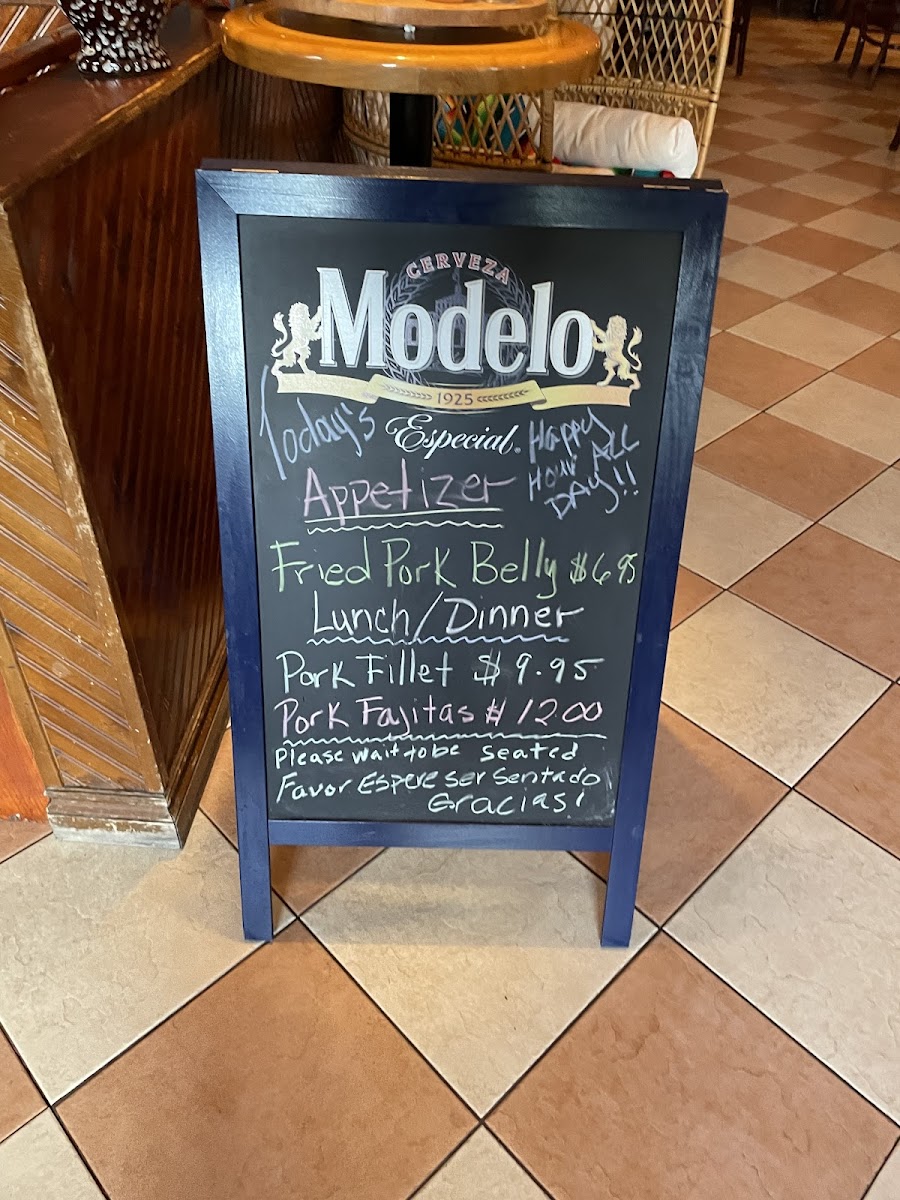 CERVEZA
Modelo
1925
Especial®
Today's
Happy
Hour ALL
DAY!!
Appetizer
Fried Pork Belly $6.95
Lunch/Dinner
Pork Fillet $9.95
Pork Fajitas $12.00
Please wait to be seated
Favor Espere ser sentado
Gracias!